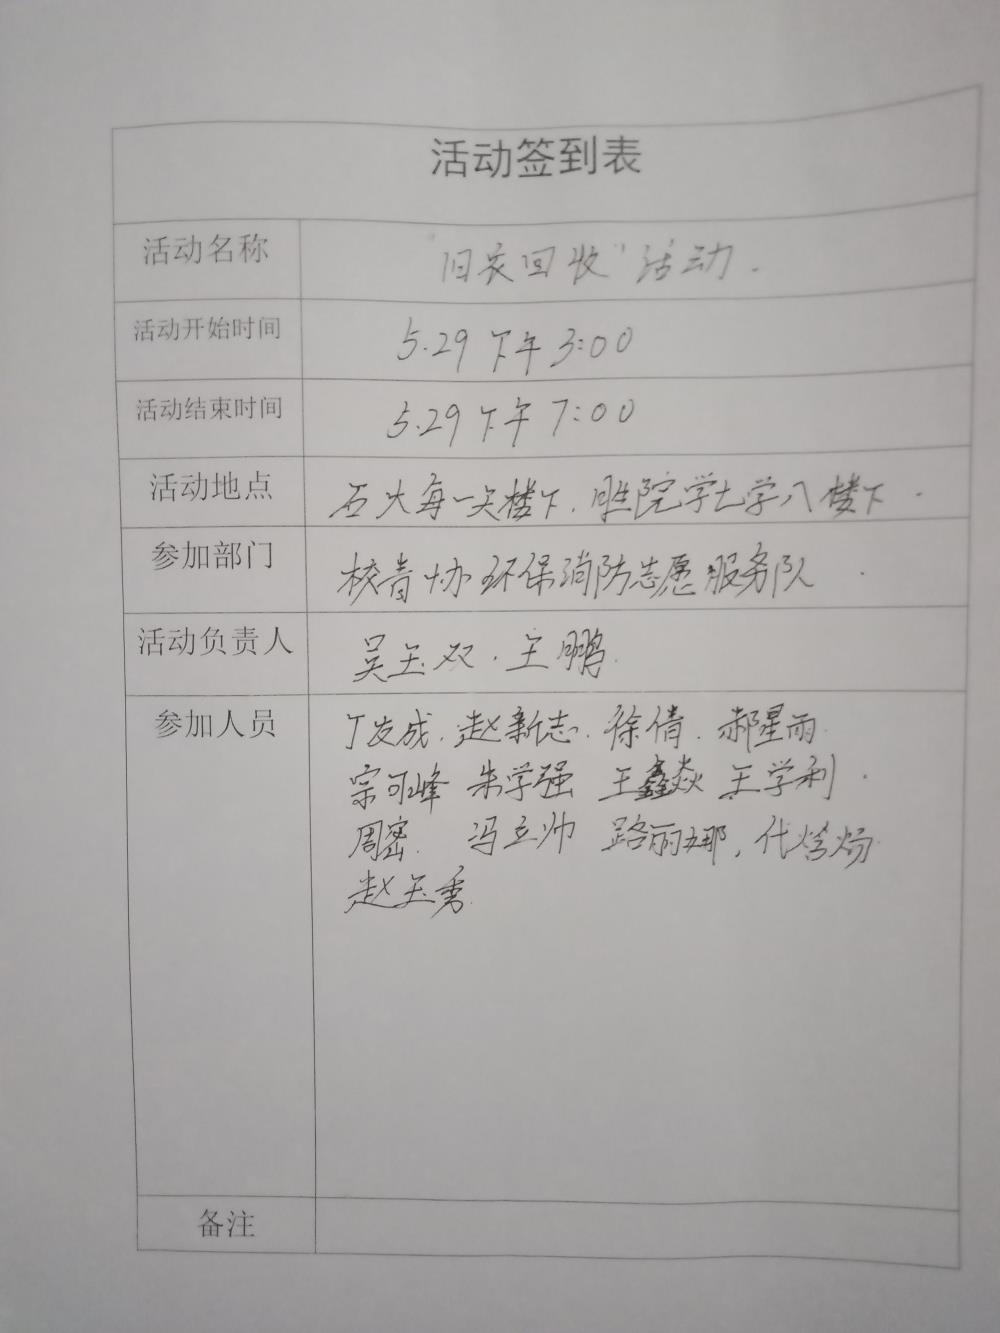 活动签到表
活动名称 "旧衣回收"活动.
活动开始时间 5.29 下午 3:00
活动结束时间 5.29 下午 7:00
活动地点 石大每一类楼下.胜院学七学八楼下.
参加部门 校青协环保消防志愿服务队.
活动负责人 吴玉双.王鹏.
参加人员 丁发成.赵新志.徐倩.郝星雨.
宗可峰 朱学强 王鑫焱 王学利.
周密. 冯立帅 路丽娜,代
赵玉秀.
备注